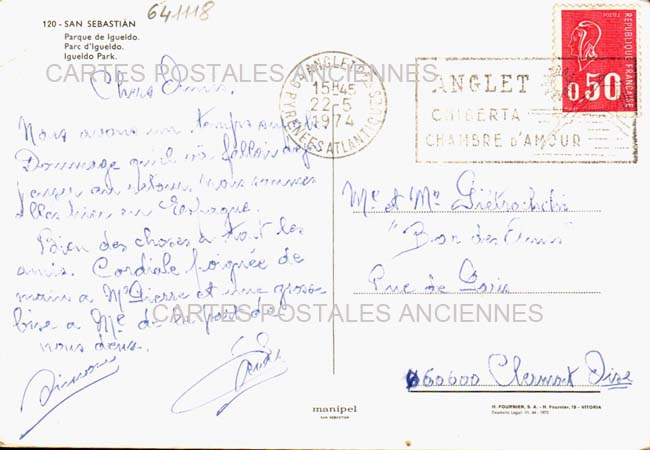 641118
120 - SAN SEBASTIÁN
Parque de Igueldo.
Parc d'Igueldo.
Igueldo Park.
CARTES POSTALES ANCIENNES
ANGLET
15H45
22-5
1974
PYRENEES ATLANTIQUES
ANGLET
CHIBERTA
CHAMBRE D'AMOUR
REPUBLIQUE FRANÇAISE
0,50
Chers Amis.
Nous avons un temps
Dommage qu'il
au retour nous sommes
allés hier en Espagne.
Bien des choses à tout les
amis. Cordiale poignée de
main a Mr Pierre et une grosse
bise a Me de la part de
nous deux.
Mr et Me
"Bar des Amis"
Rue de Paris
60600 Clermont Oise
CARTES POSTALES ANCIENNES
manipel
SAN SEBASTIAN
H. FOURNIER, S. A. - H. Fournier, 19 - VITORIA